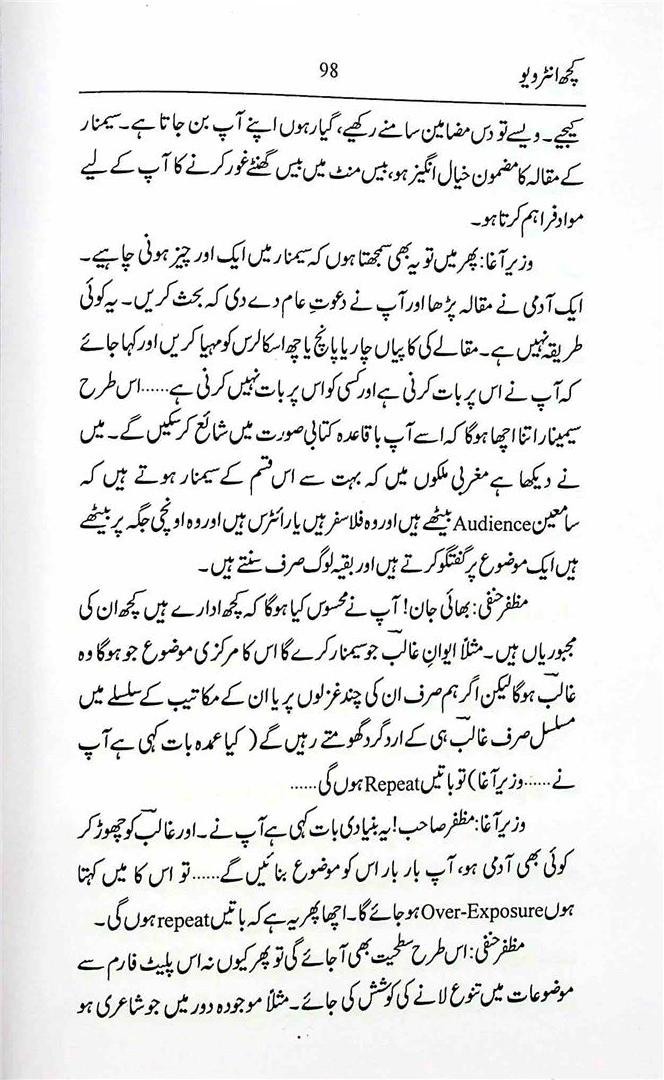 کچھ انٹرویو
98
کیجیے۔ ویسے تو دس مضامین سامنے رکھیے، گیارہوں اپنے آپ بن جاتا ہے۔ سیمنار
کے مقالہ کا مضمون خیال انگیز ہو، بیس منٹ میں بیس گھنٹے غور کرنے کا آپ کے لیے
مواد فراہم کرتا ہو۔
وزیر آغا: پھر میں تو یہ بھی سمجھتا ہوں کہ سیمنار میں ایک اور چیز ہونی چاہیے۔
ایک آدمی نے مقالہ پڑھا اور آپ نے دعوتِ عام دے دی کہ بحث کریں۔ یہ کوئی
طریقہ نہیں ہے۔ مقالے کی کاپیاں چار یا پانچ یا چھ اسکالرس کو مہیا کریں اور کہا جائے
کہ آپ نے اس پر بات کرنی ہے اور کسی کو اس پر بات نہیں کرنی ہے...... اس طرح
سیمینار اتنا اچھا ہوگا کہ اسے آپ باقاعدہ کتابی صورت میں شائع کرسکیں گے۔ میں
نے دیکھا ہے مغربی ملکوں میں کہ بہت سے اس قسم کے سیمنار ہوتے ہیں کہ
سامعین Audience بیٹھے ہیں اور وہ فلاسفر ہیں یا رائٹرس ہیں اور وہ اونچی جگہ پر بیٹھے
ہیں ایک موضوع پر گفتگو کرتے ہیں اور بقیہ لوگ صرف سنتے ہیں۔
مظفر حنفی: بھائی جان! آپ نے محسوس کیا ہوگا کہ کچھ ادارے ہیں کچھ ان کی
مجبوریاں ہیں۔ مثلاً ایوانِ غالبؔ جو سیمنار کرے گا اس کا مرکزی موضوع جو ہوگا وہ
غالبؔ ہوگا لیکن اگر ہم صرف ان کی چند غزلوں پر یا ان کے مکاتیب کے سلسلے میں
مسلسل صرف غالبؔ ہی کے اردگرد گھومتے رہیں گے (کیا عمدہ بات کہی ہے آپ
نے...... وزیر آغا) تو باتیں Repeat ہوں گی......
وزیر آغا: مظفر صاحب! یہ بنیادی بات کہی ہے آپ نے۔ اور غالبؔ کو چھوڑ کر
کوئی بھی آدمی ہو، آپ بار بار اس کو موضوع بنائیں گے...... تو اس کا میں کہتا
ہوں Over-Exposure ہو جائے گا۔ اچھا پھر یہ ہے کہ باتیں repeat ہوں گی۔
مظفر حنفی: اس طرح سطحیت بھی آ جائے گی تو پھر کیوں نہ اس پلیٹ فارم سے
موضوعات میں تنوع لانے کی کوشش کی جائے۔ مثلاً موجودہ دور میں جو شاعری ہو